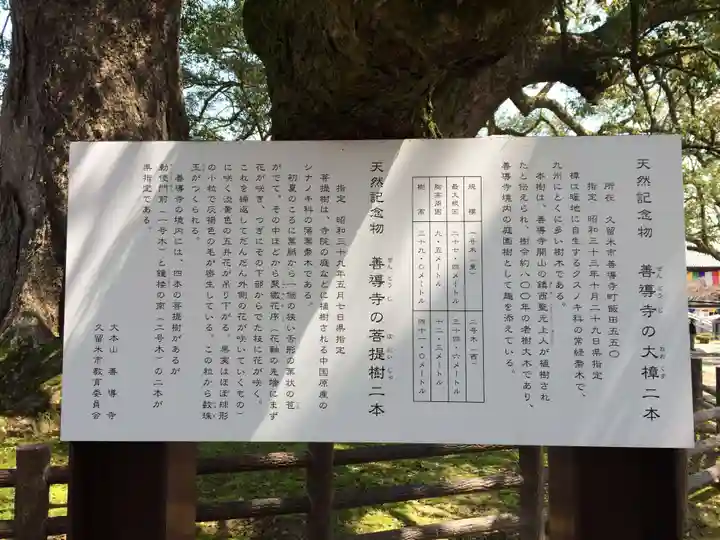 天然記念物　善導寺の大樟二本
ぜんどうじ　おおくす
所在　久留米市善導寺町飯田五五〇
指定　昭和三十三年十月二十九日県指定
樟は暖地に自生するクスノキ科の常緑喬木で、
九州にとくに多い樹木である。
本樹は、善導寺開山の鎮西聖光上人が植樹され
たと伝えられ、樹令約八〇〇年の老樹大木であり、
善導寺境内の庭園樹として趣を添えている。
規模　一号木（東）　二号木（西）
最大根回　二十七・四メートル　三十四・六メートル
胸高周囲　九・五メートル　十二・三メートル
樹高　三十九・〇メートル　四十一・〇メートル
天然記念物　善導寺の菩提樹二本
ぜんどうじ　ぼだいじゅ
指定　昭和三十九年五月七日県指定
菩提樹は、寺院の庭などに植樹される中国原産の
シナノキ科の落葉喬木である。
初夏のころに葉腋から一個の狭い舌形の葉状の苞
がでて、その中ほどから聚繖花序（花軸の先端にまず
花が咲き、つぎにその下部からでた枝に花が咲く。
これを繰返してだんだん外側の花が咲いていくもの）
に咲く淡黄色の五弁花が吊り下がる。果実はほぼ球形
の小粒で灰褐色の毛が密生している。この粒から数珠
玉がつくられる。
善導寺の境内には、四本の菩提樹があるが
勅使門前（一号木）と鐘楼の南（二号木）の二本が
県指定である。
大本山　善導寺
久留米市教育委員会